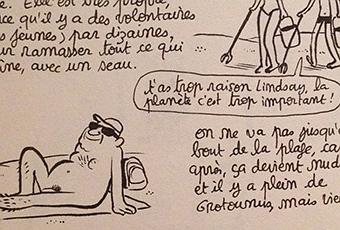 e. Elle est très propre,
ce qu'il y a des volontaires
es jeunes; par dizaines,
ur ramasser tout ce qui
îne, avec un seau.
t'as trop raison Lindsay, la
planète c'est trop important!
on ne va pas jusqu'
bout de la plage, ca
après, ça devient nud
et il y a plein de
Grotounus, mais vie